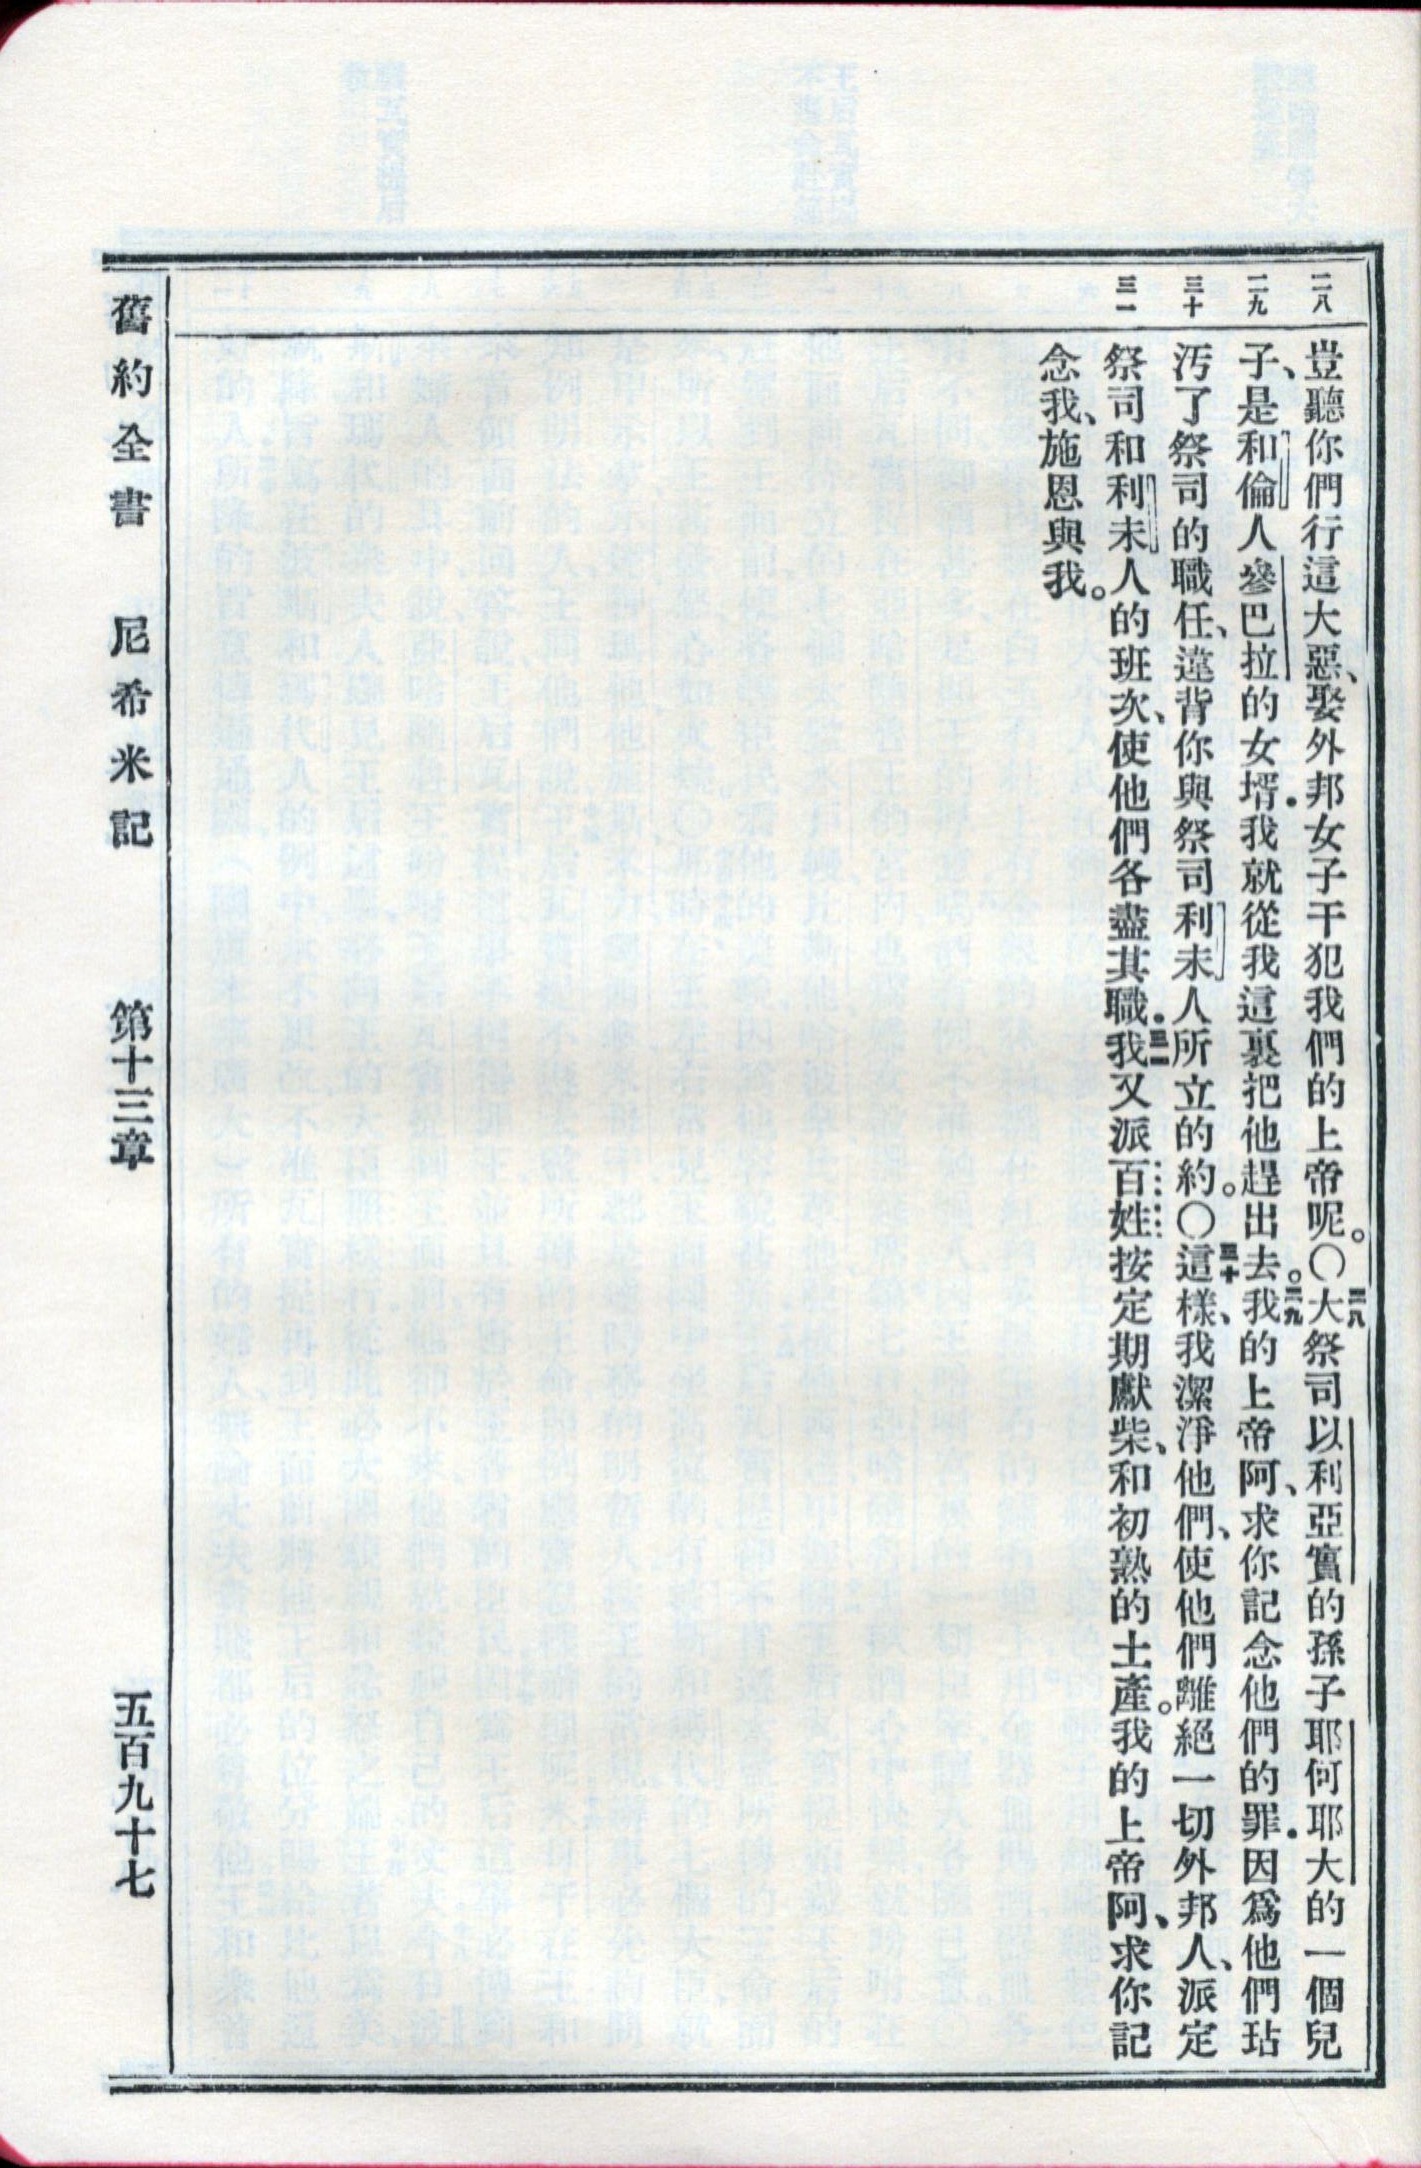 二八
二九
三十
三一
豈聽你們行這大惡、娶外邦女子干犯我們的上帝呢。〇二八大祭司以利亞實的孫子耶何耶大的一個兒
子、是和倫人參巴拉的女壻．我就從我這裏把他趕出去。二九我的上帝阿、求你記念他們的罪．因爲他們玷
汚了祭司的職任、違背你與祭司利未人所立的約。〇三十這樣、我潔淨他們、使他們離絕一切外邦人、派定
祭司和利未人的班次、使他們各盡其職．三一我又派百姓按定期獻柴、和初熟的土產。我的上帝阿、求你記
念我、施恩與我。
舊約全書　尼希米記　第十三章　五百九十七